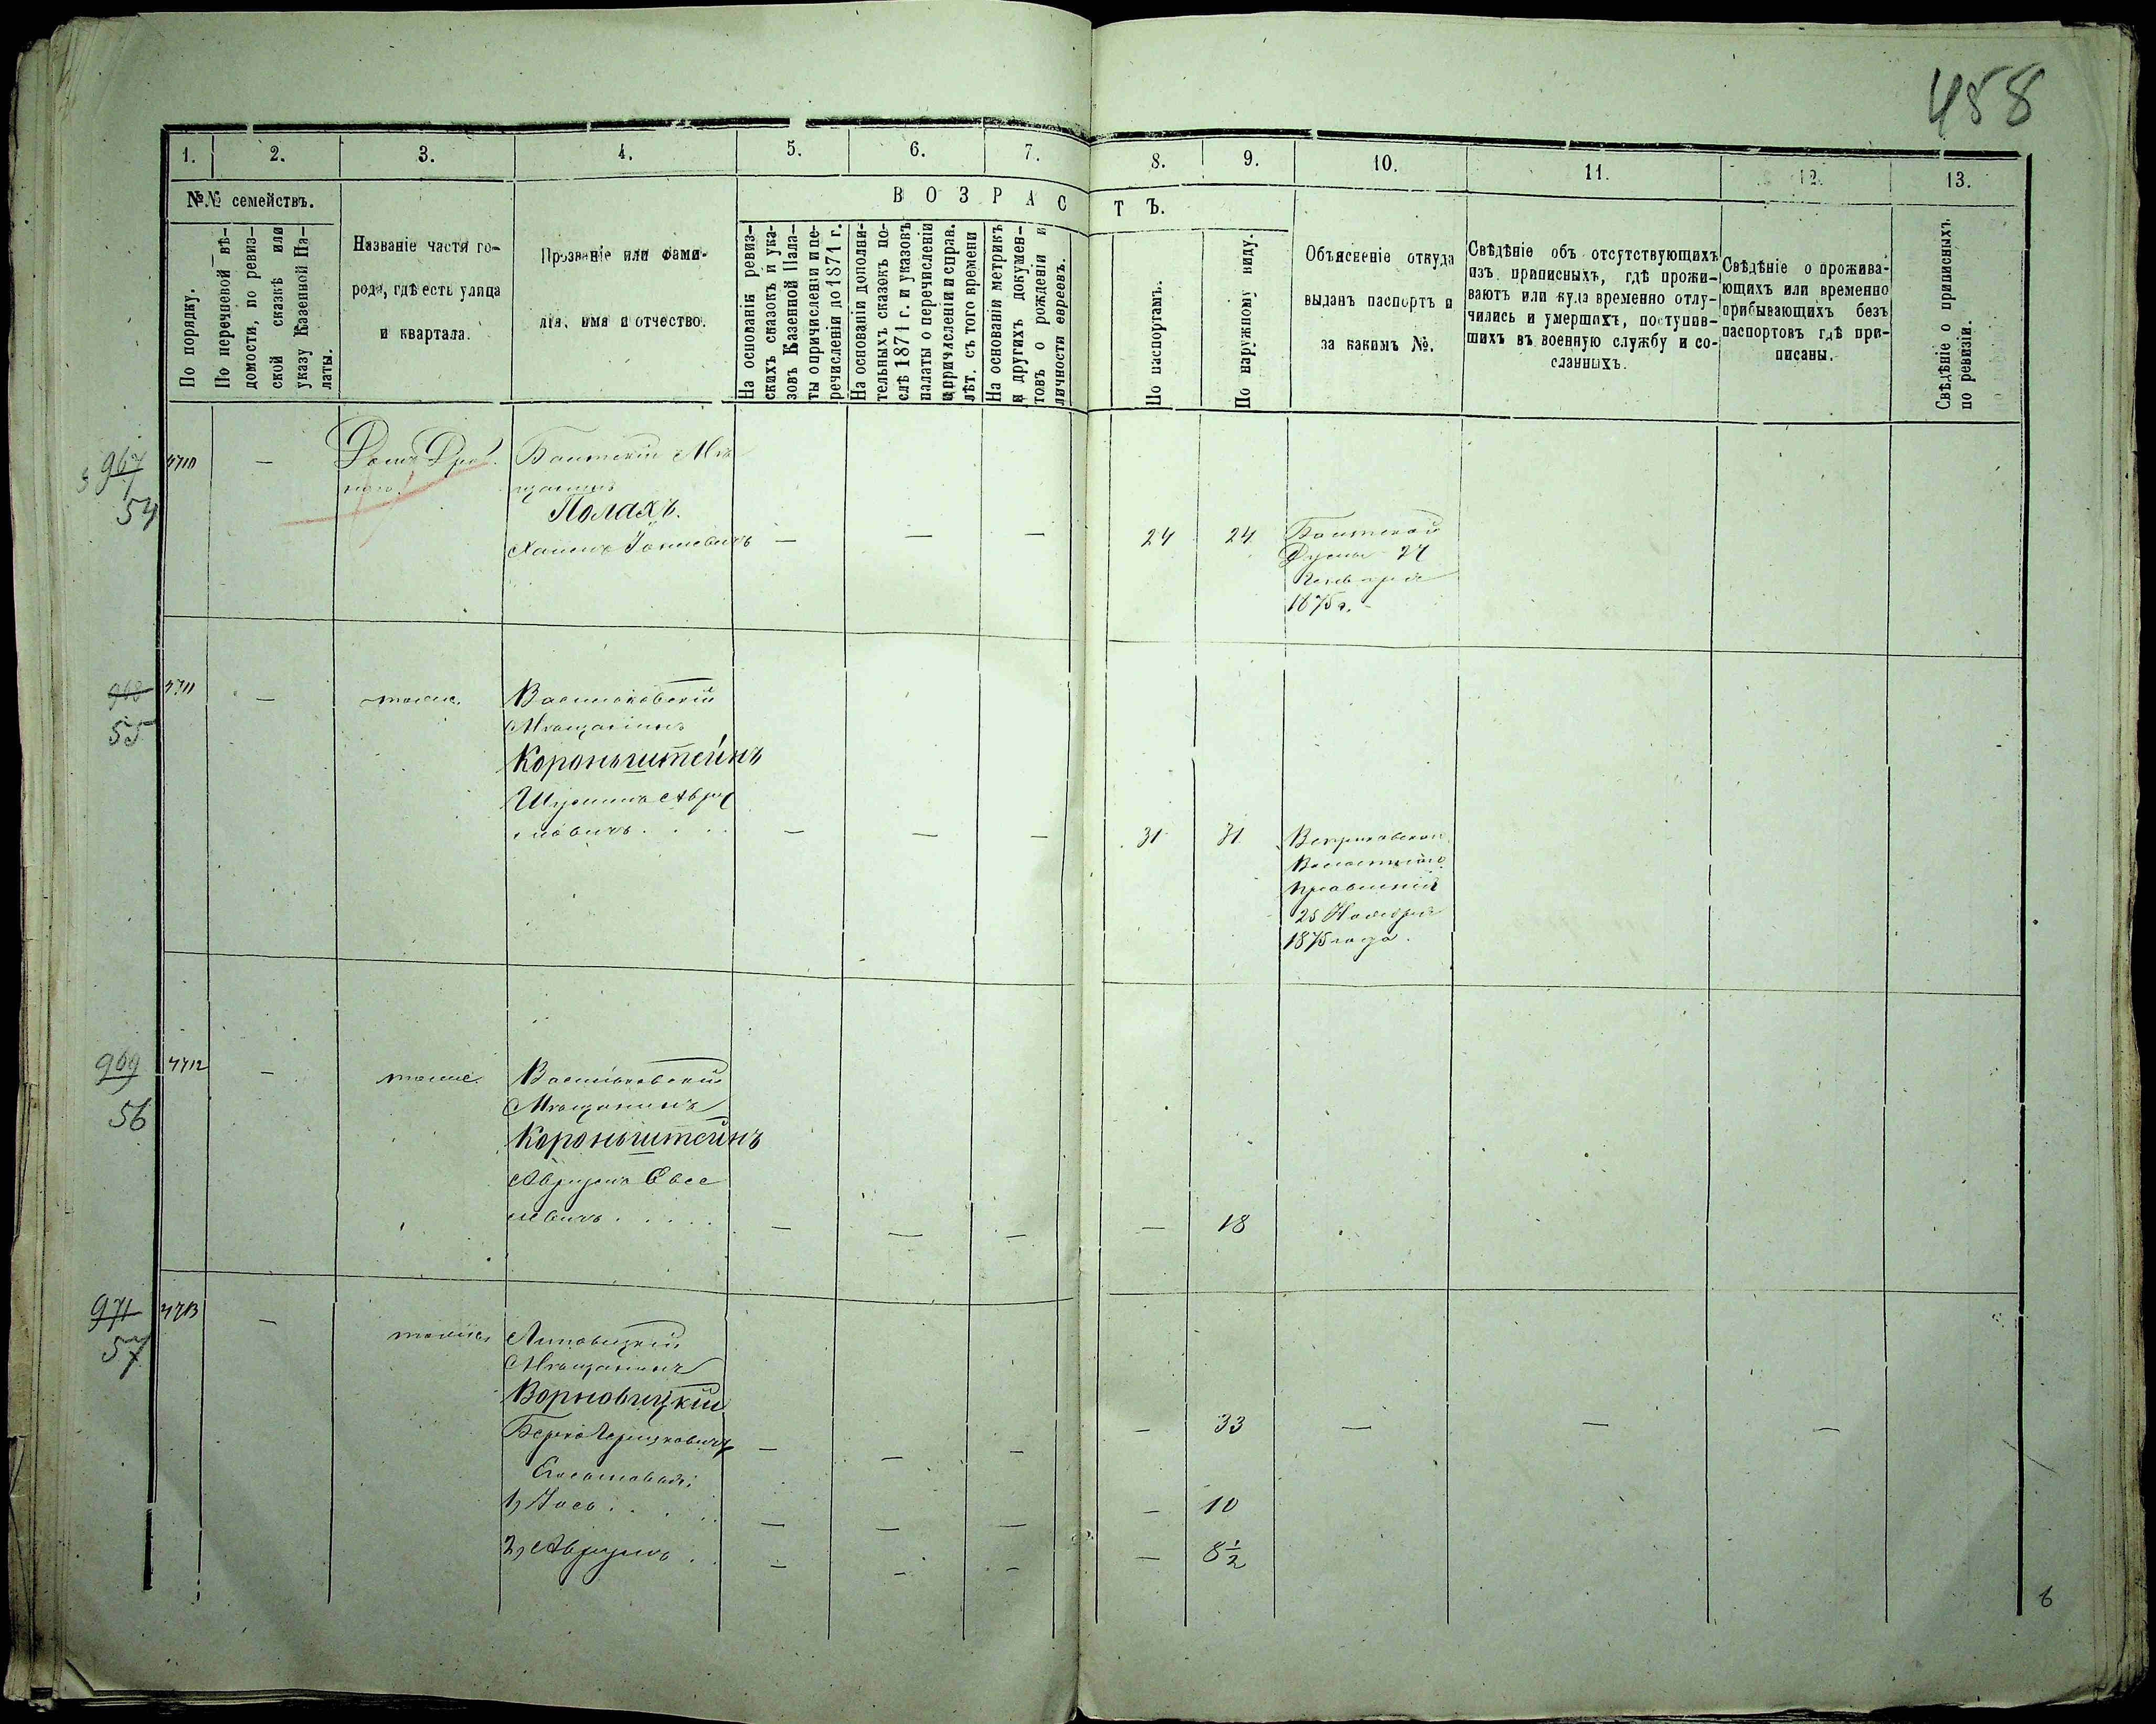 458
1.
2.
3.
4.
5.
6.
7.
8.
9.
10.
11.
12.
13.
№№ семействъ.
По порядку.
По перечневой вѣ-
домости, по ревиз-
ской сказкѣ или
указу Казенной Па-
латы.
Названіе части го-
рода, гдѣ есть улица
и квартала.
Прозваніе или фами-
лія, имя и отчество.
ВОЗРАСТЪ.
На основаніи ревиз-
скихъ сказокъ и ука-
зовъ Казенной Пала-
ты о причисленіи и пе-
речисленіи до 1871 г.
На основаніи дополни-
тельныхъ сказокъ по-
слѣ 1871 г. и указовъ
палаты о перечисленіи
и причисленіи и справ.
лѣт. съ того времени
На основаніи метрикъ
и другихъ докумен-
товъ о рожденіи и
личности евреевъ.
По паспортамъ.
По наружному виду.
Объясненіе откуда
выданъ паспортъ и
за какимъ №.
Свѣдѣніе объ отсутствующихъ
изъ приписныхъ, гдѣ прожи-
ваютъ или куда временно отлу-
чились и умершихъ, поступив-
шихъ въ военную службу и со-
сланныхъ.
Свѣдѣніе о прожива-
ющихъ или временно
прибывающихъ безъ
паспортовъ гдѣ при-
писаны.
Свѣдѣніе о приписныхъ
по ревизіи.
967
54
4710
—
Домъ
Балтскій Мѣ
щанинъ
Полакъ.
— — — 24 24
Балтской
Думы 24
Января
1875 г.
968
55
4711
—
тоже.
Васильковскій
Мѣщанинъ
Короньштейнъ
Шулимъ Авру
мовичъ . . . .
— — — 31 31
Волостнаго
Правленія
25 Ноября
1875 года.
969
56
4712
—
тоже.
Васильковскій
Мѣщанинъ
Короньштейнъ
Аврумъ Евсе
евичъ . . . . .
— — — — 18
971
57
4713
—
тоже
Липовецкій
Мѣщанинъ
Ворновицкій
Берко Гершковичъ
— — — — 33 — — —
Сыновья:
1, Іось . . . .
— — — — 10
2, Аврумъ . .
— — — — 8½